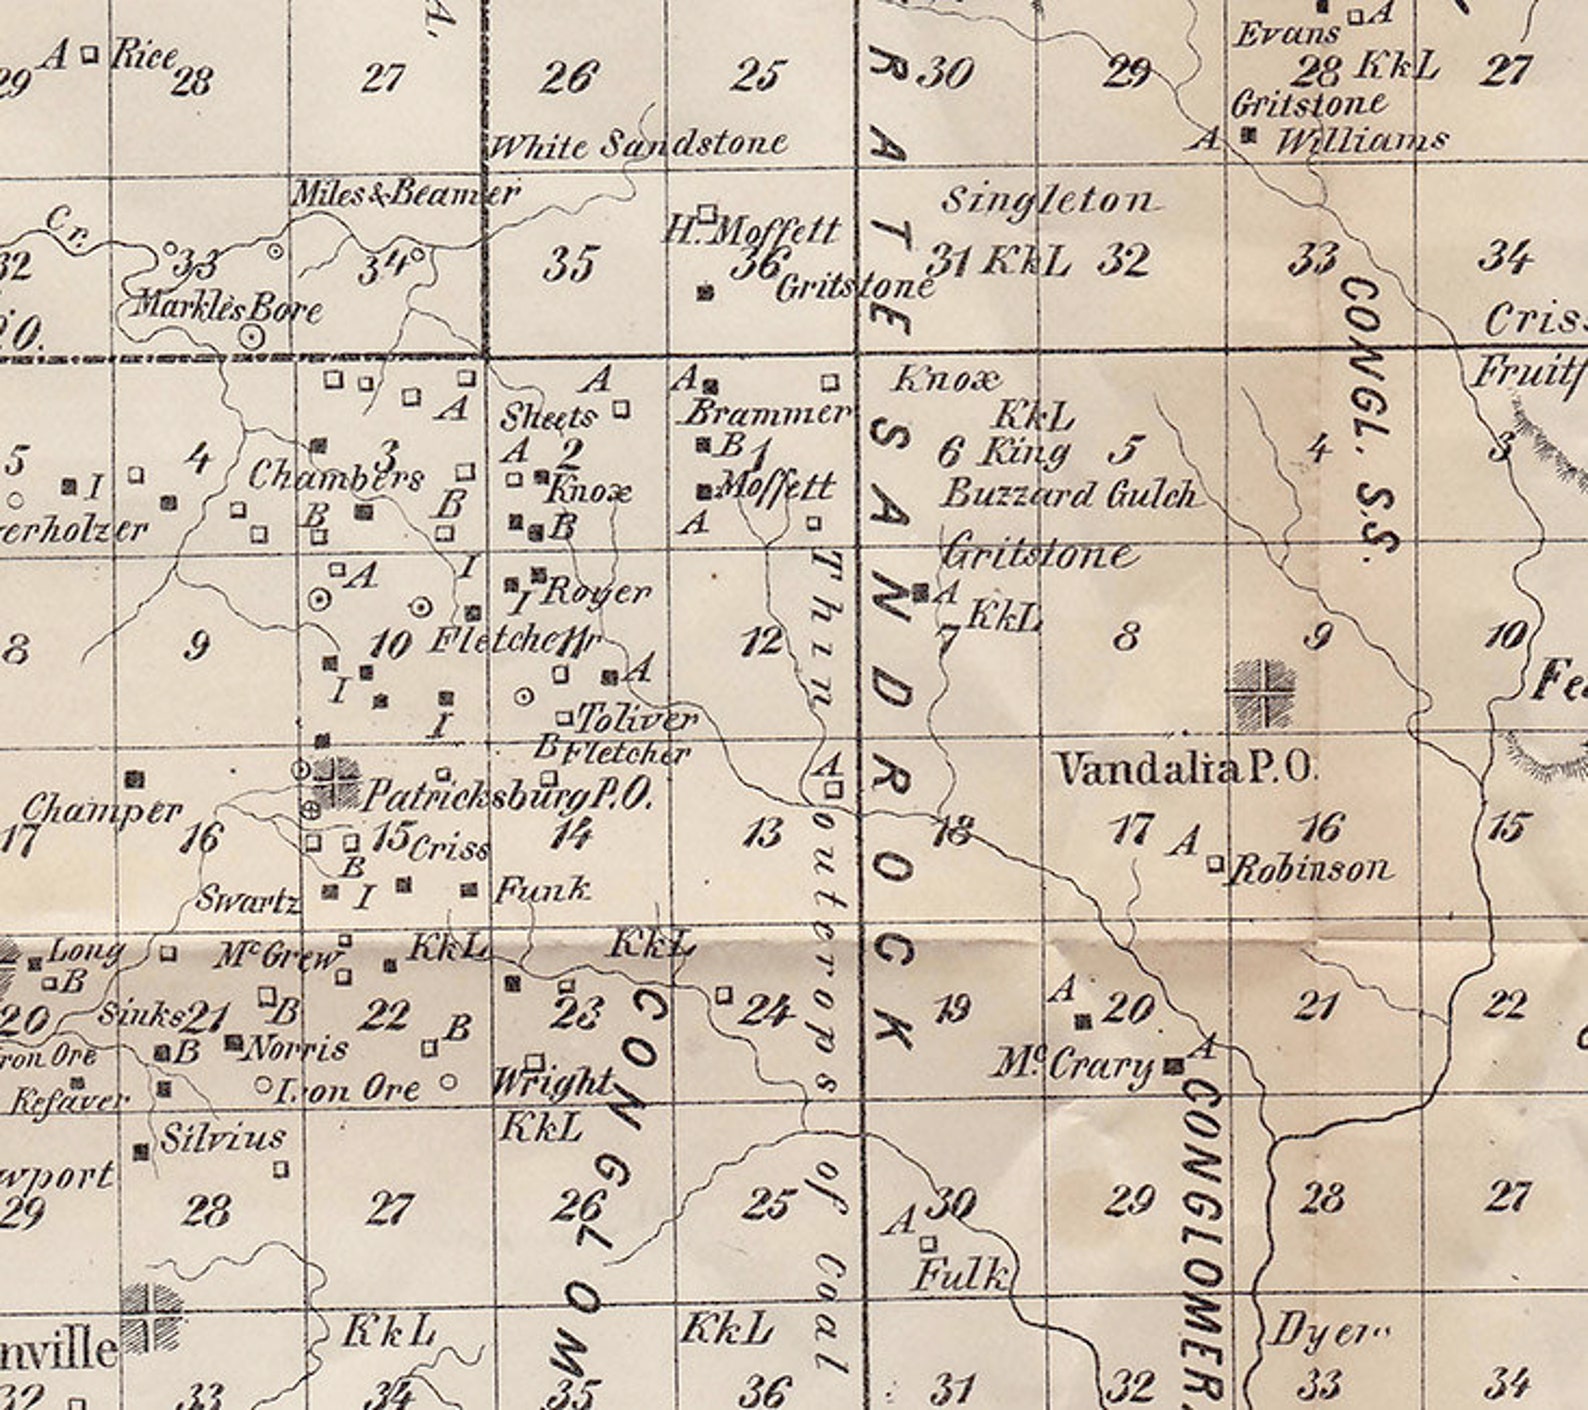 A Rice
29 28 27 26 25 30 29 28 KkL 27
A
Evans
Gritstone
A Williams
White Sandstone
Miles & Beamer
Cr.
H. Moffett
Singleton
32 33 34 35 36 31 KkL 32 33 34
Gritstone
Markles Bore
P.O.
Criss
Fruitf
A A A
Knox
Sheets
Brammer
KkL
5 4 3 2 1 6 King 5 4 3
A B
I
Chambers
Knox
Moffett
Buzzard Gulch
erholzer
B B B A
Gritstone
A I
I Royer
A
KkL
8 9 10 Fletcher 11 12 7 8 9 10
I A
I
Toliver
B Fletcher
Fe
Vandalia P.O.
A
Champer
Patricksburg P.O.
17 16 15 Criss 14 13 18 17 A 16 15
B
Robinson
Swartz I Funk
Long
McGrew KkL KkL
B
A
20 Sinks 21 B 22 B 23 24 19 20 21 22
ron Ore B Norris
McCrary A
Kefaver Iron Ore Wright
Silvius KkL
wport
29 28 27 26 25 30 29 28 27
A
Fulk
nville
KkL KkL Dyer
32 33 34 35 36 31 32 33 34
RATE SANDROCK
Thin outerops of Coal
CONGLOM
CONGL. S.S.
CONGLOMER
A.